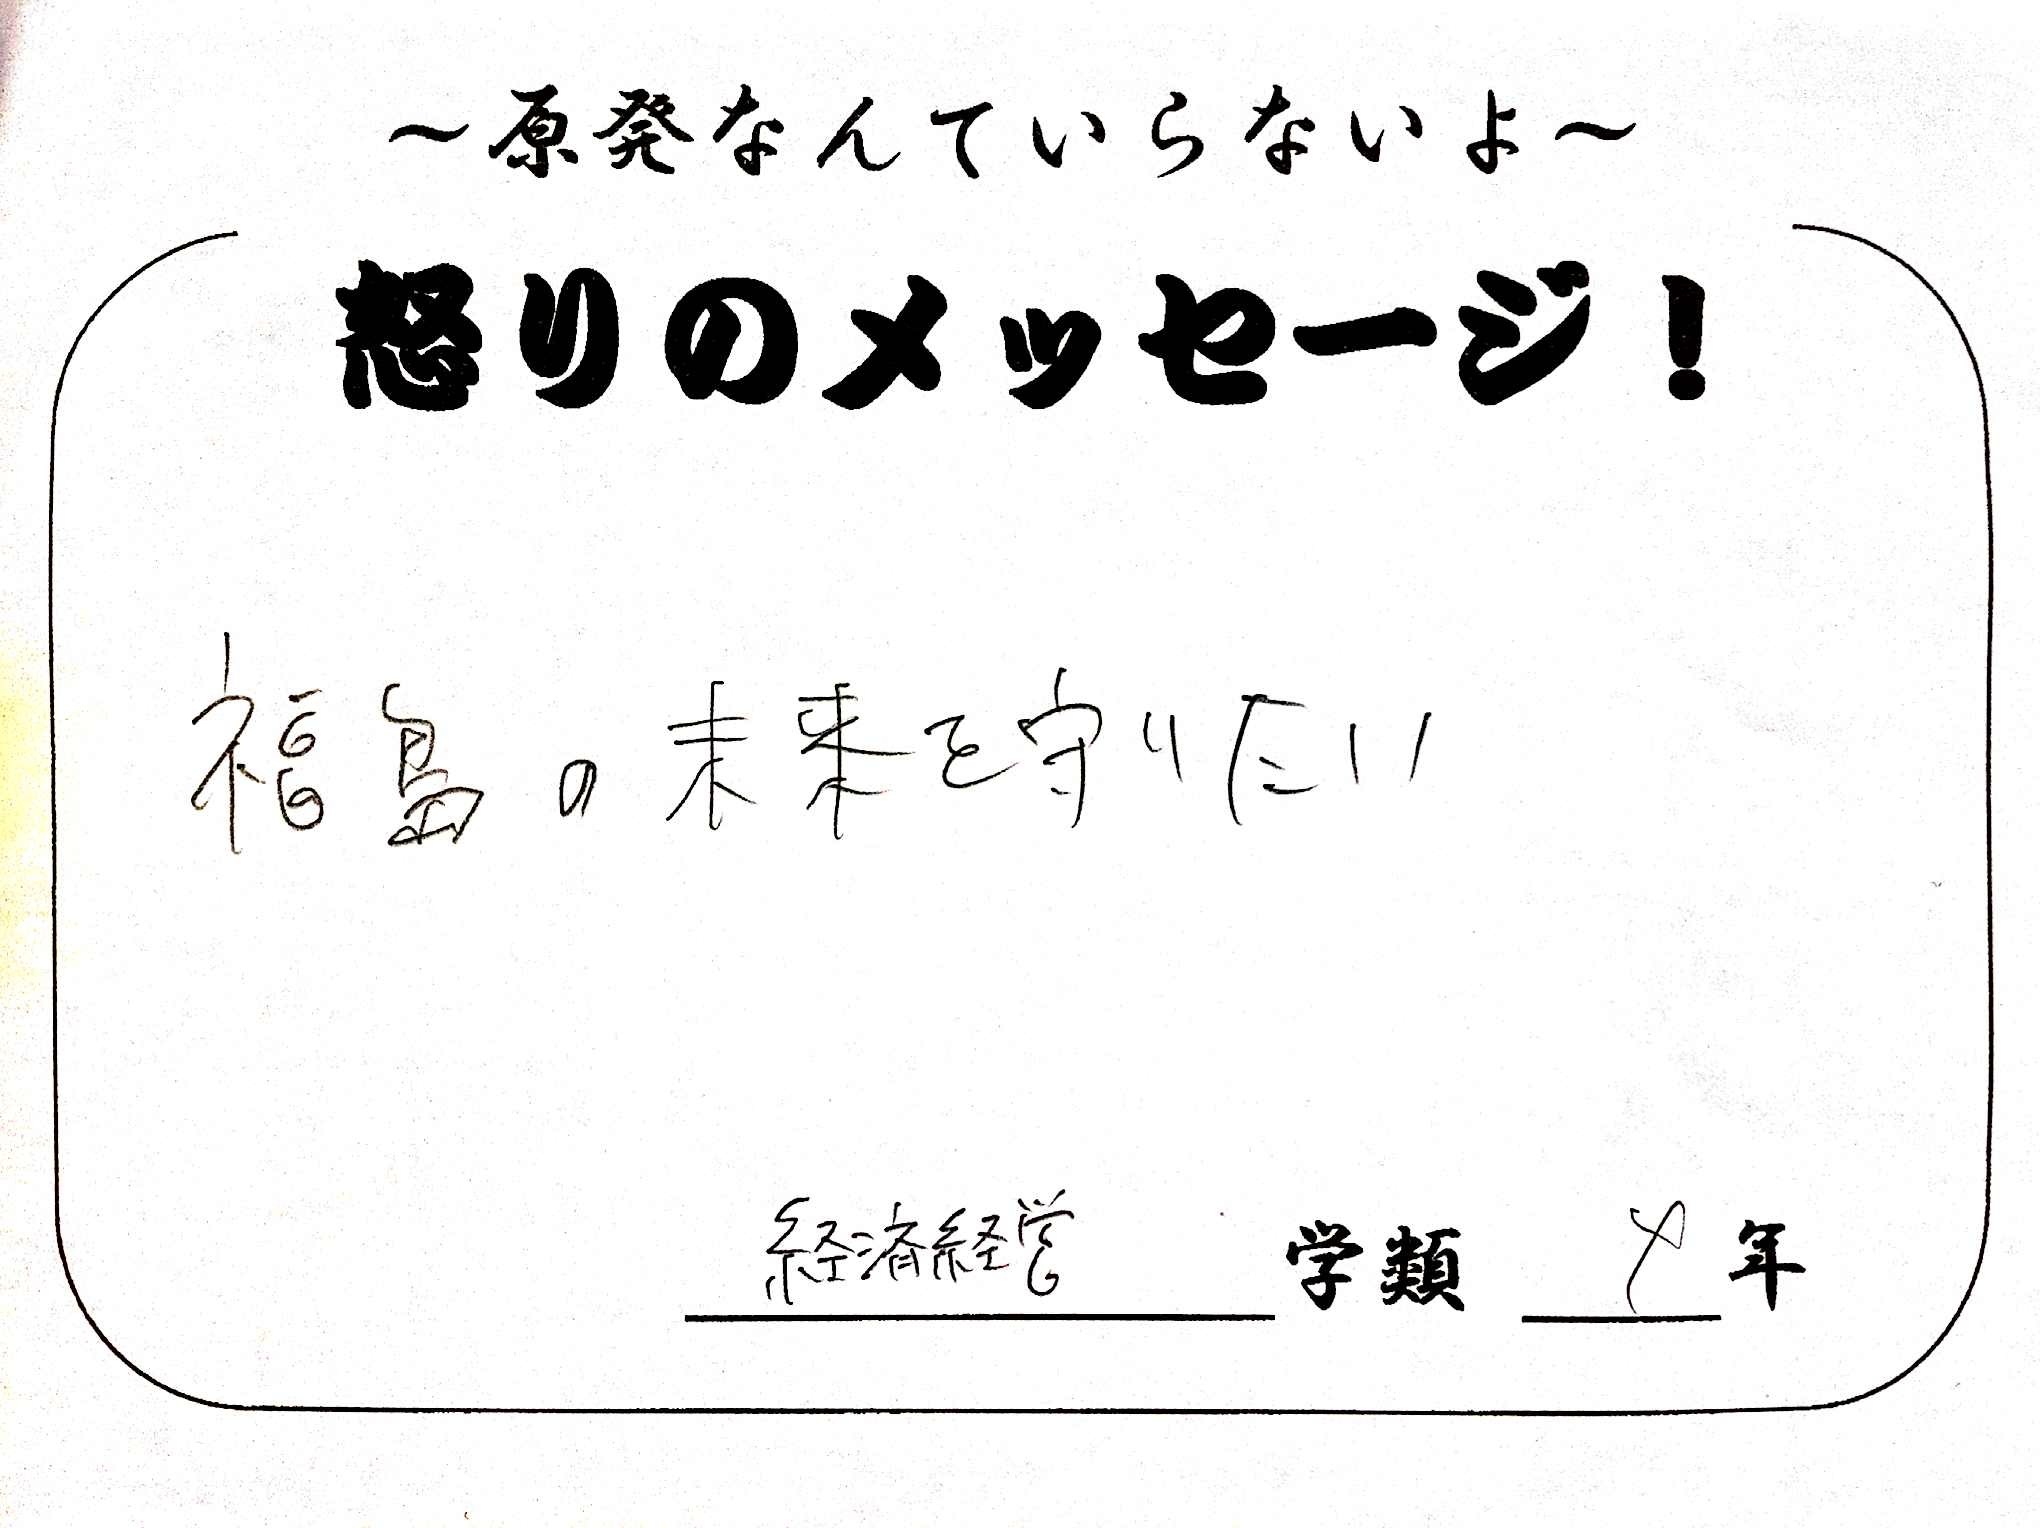 ～原発なんていらないよ～
怒りのメッセージ！
福島の未来を守りたい
経済経営 学類 4 年